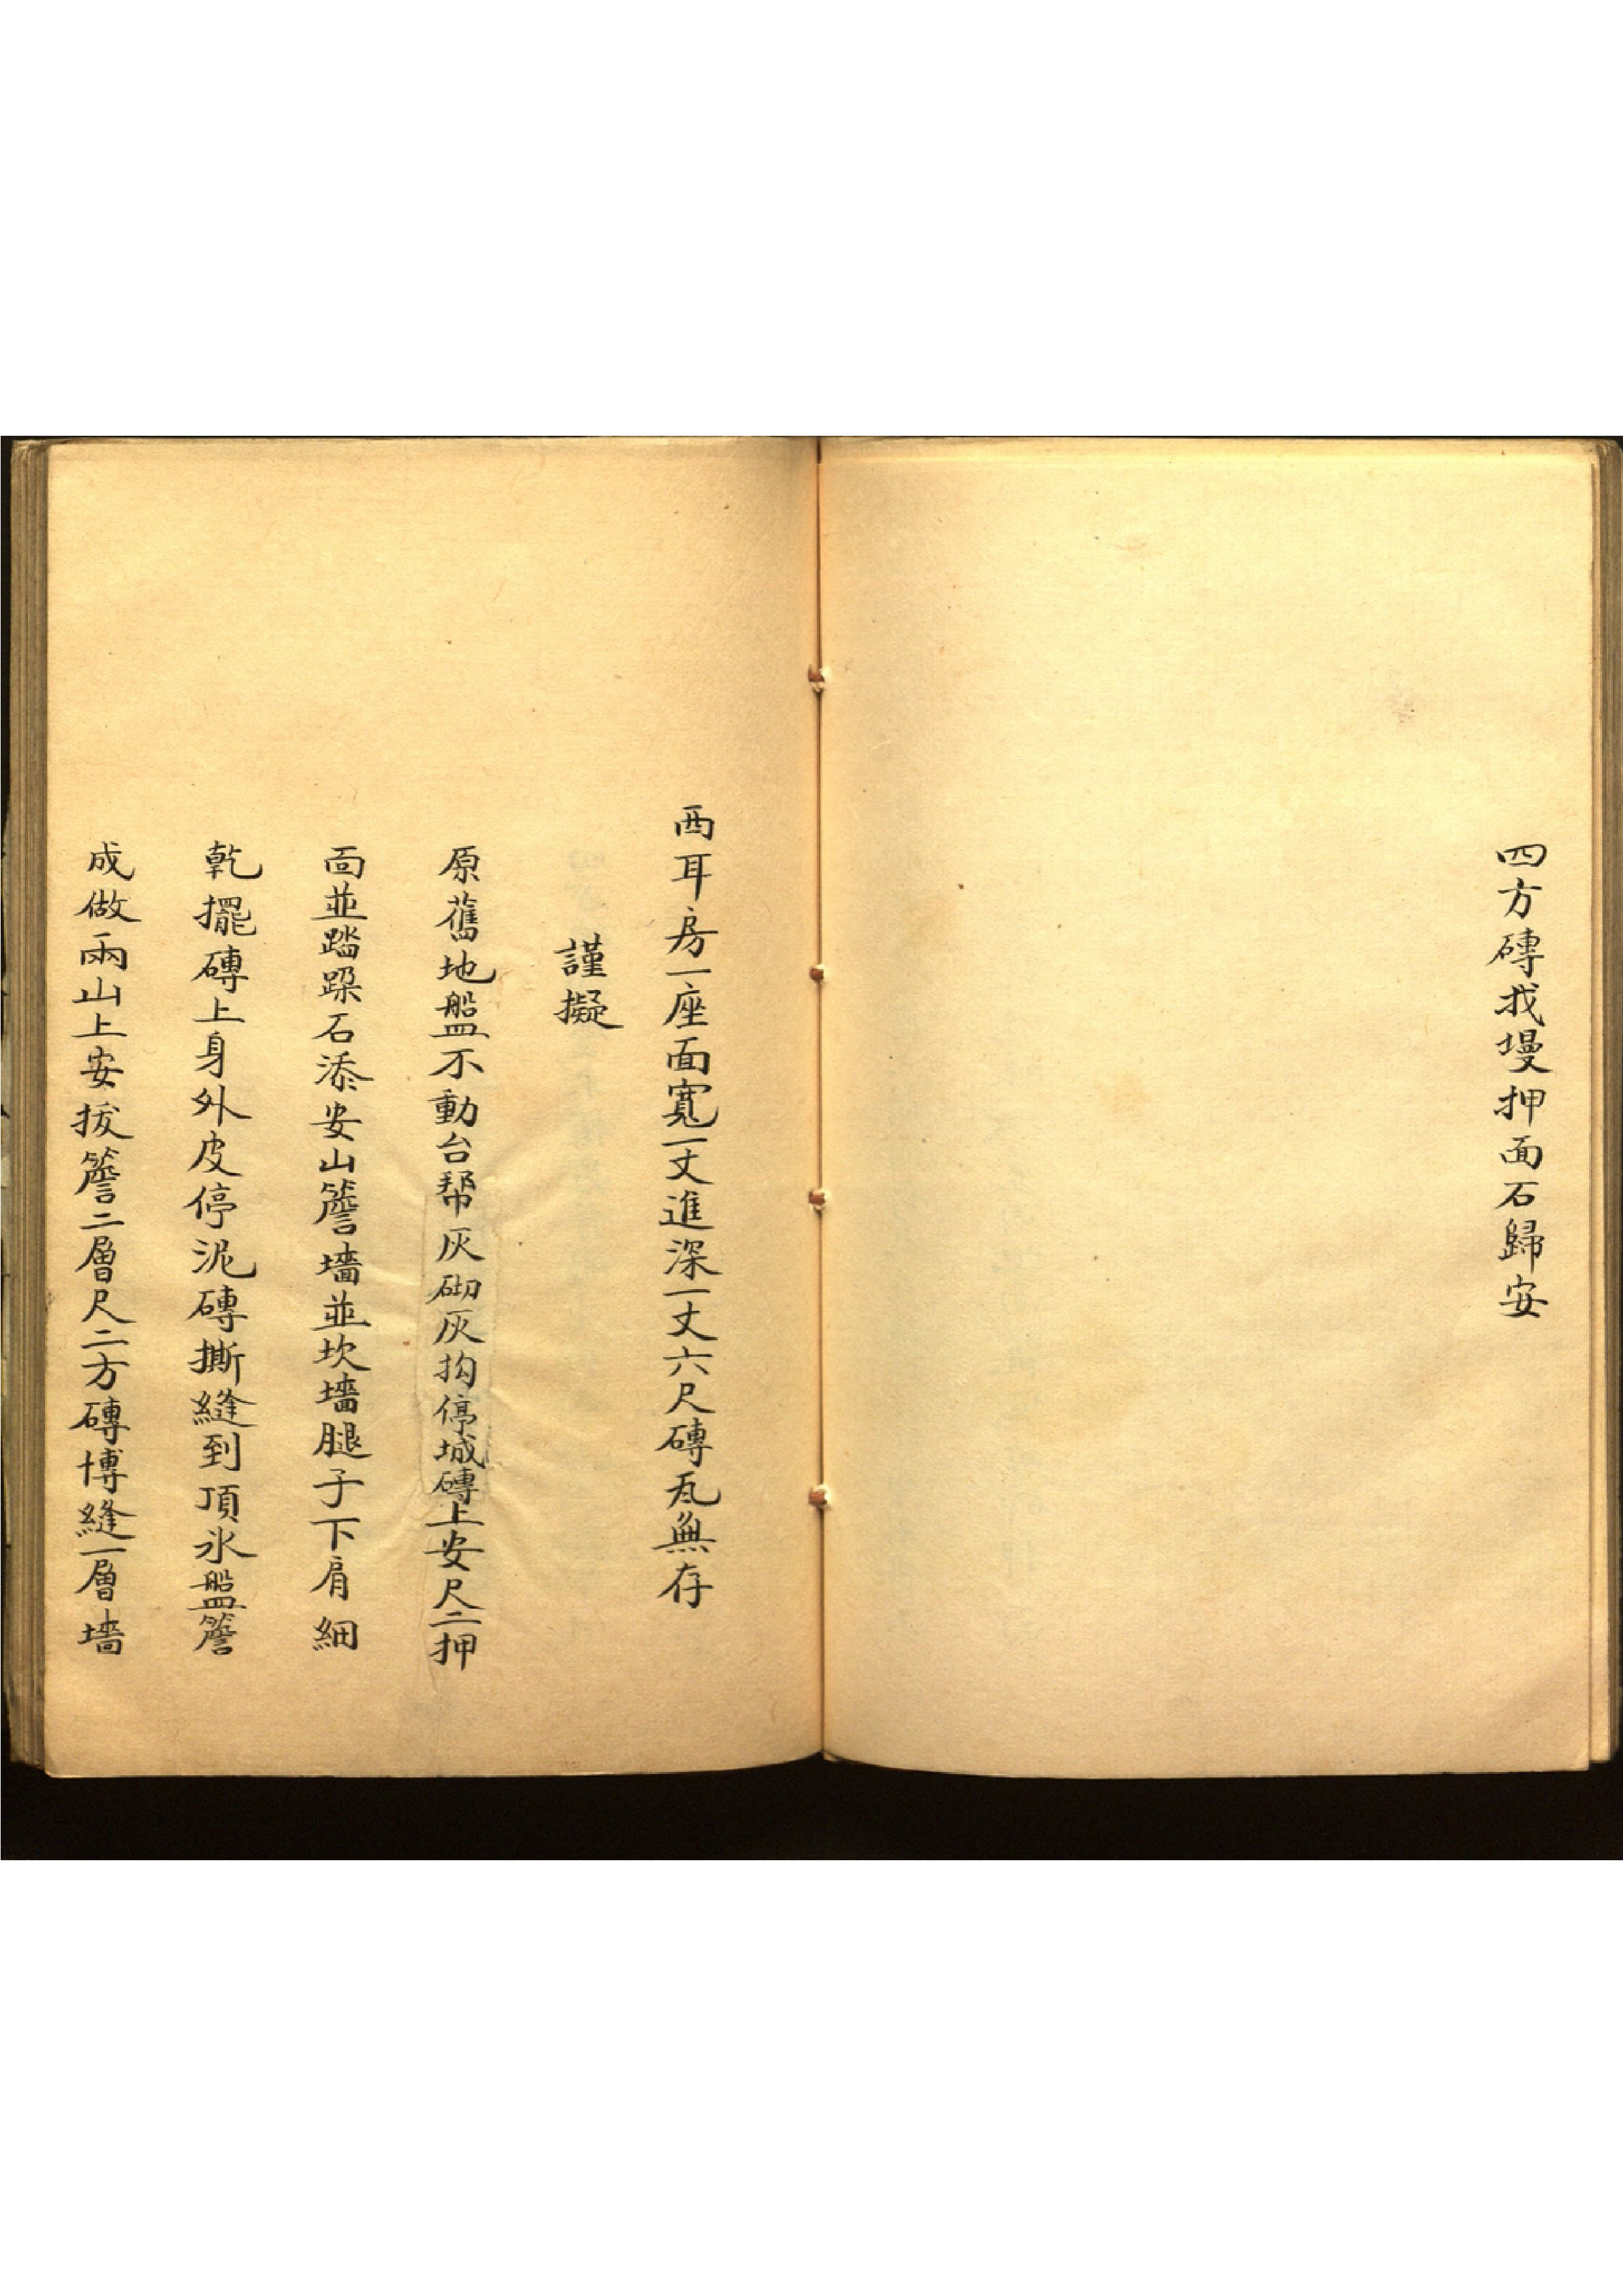 四方磚找墁押面石歸安
西耳房一座面寬一丈進深一丈六尺磚瓦無存
謹擬
原舊地盤不動台幚灰砌灰抅停城磚上安尺二押
面並踏跺石添安山簷墻並坎墻腿子下肩細
乾擺磚上身外皮停泥磚撕縫到頂氷盤簷
成做兩山上安拔簷二層尺二方磚博縫一層墻